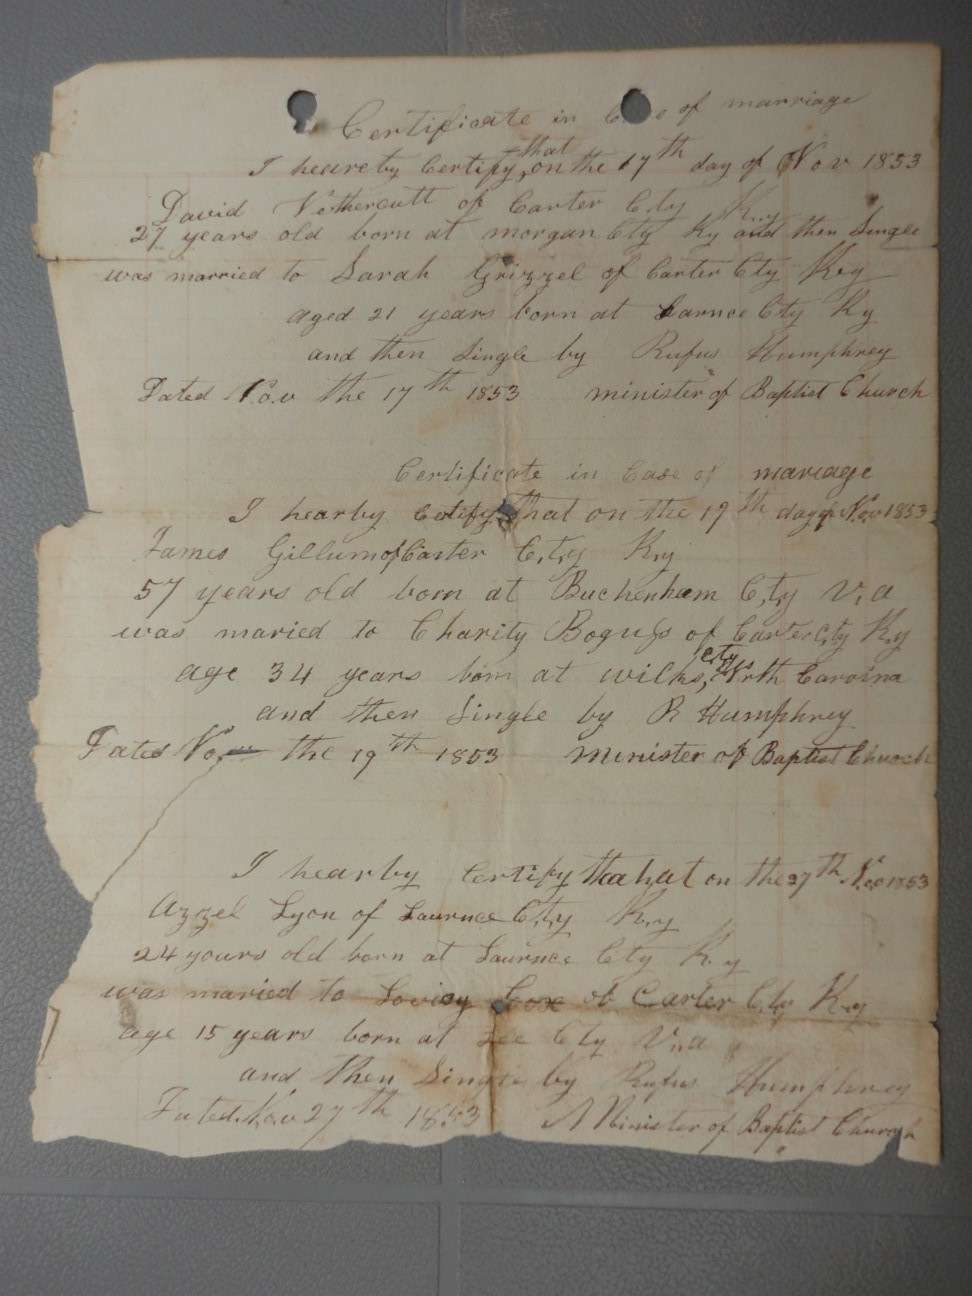 Certificate in Case of marriage
I heareby Certify, that on the 17th day of Nov 1853
David Nethercutt of Carter Cty Ky
27 years old born at morgan Cty Ky and then Single
was married to Sarah Grizzel of Carter Cty Ky
aged 21 years born at Larnce Cty Ky
and then Single by Rufus Humphrey
Dated Nov the 17th 1853 minister of Baptist Church
Certificate in Case of mariage
I hearby Cetify that on the 19th day of Nov 1853
James Gillum of Carter Cty Ky
57 years old born at Buckenham Cty Va
was maried to Charity Boggs of Carter Cty Ky
age 34 years born at wilks, Cty North Caroina
and then Single by R Humphrey
Dated Nov the 19th 1853 minister of Baptist Church
I hearby Certify thahat on the 27th Nov 1853
Azzel Lyon of Laurnce Cty Ky
24 yours old born at Laurnce Cty Ky
was maried to Lovicy Cox of Carter Cty Ky
age 15 years born at Lee Cty Va
and then Single by Rufus Humphrey
Dated Nov 27th 1853 A Minister of Baptist Church